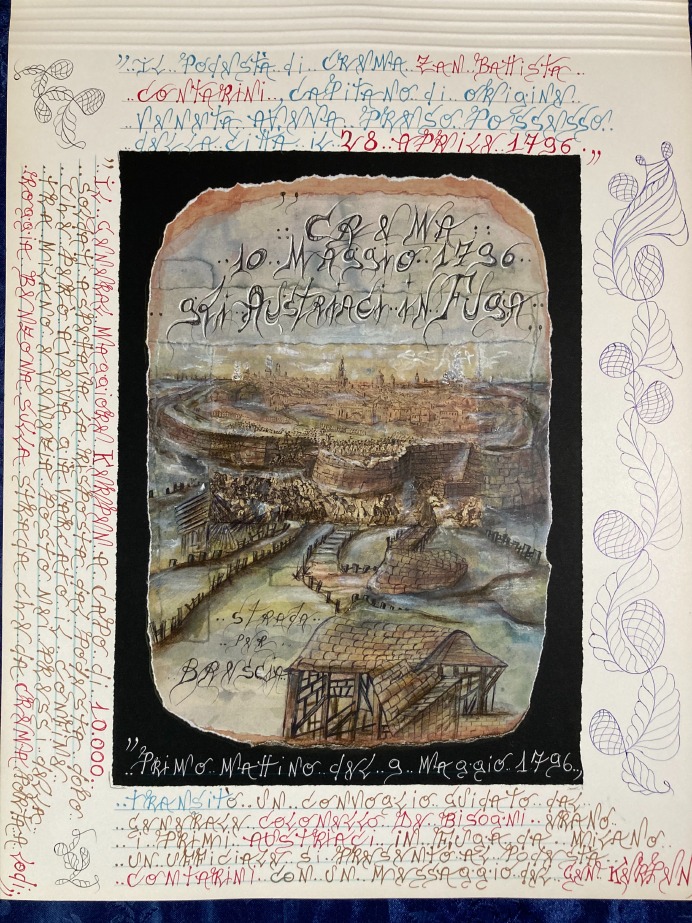 "IL PODESTÀ di CREMA ZAN BATTISTA
CONTARINI CAPITANO di ORIGINE
VENETA AVEVA PRESO POSSESSO
DELLA CITTÀ IL 28 APRILE 1796"
"CREMA
10 MAGGIO 1796
gli AUSTRIACI IN FUGA"
STRADA
PER
BRESCIA
"PRIMO MATTINO del 9 MAGGIO 1796,,
TRANSITÒ UN CONVOGLIO GUIDATO DAL
GENERALE COLONELLO DE BISOGNI ERANO
I PRIMI AUSTRIACI IN FUGA DA MILANO
UN UFFICIALE SI PRESENTÒ AL PODESTÀ
CONTARINI CON UN MESSAGGIO del GEN KERPEN
"IL GENERAL MAGGIORE KERPEN A CAPO di 10.000
SOLDATI ASPETTAVA LA RISPOSTA DAL PODESTÀ DOPO
CHE PERÒ AVEVA GIÀ VARCATO IL CONFINE
TRA MILANO E VENEZIA POSTO NEI PRESSI DELLA
ROGGIA BENZONA SULLA STRADA CHE DA CREMA PORTA A LODI,,